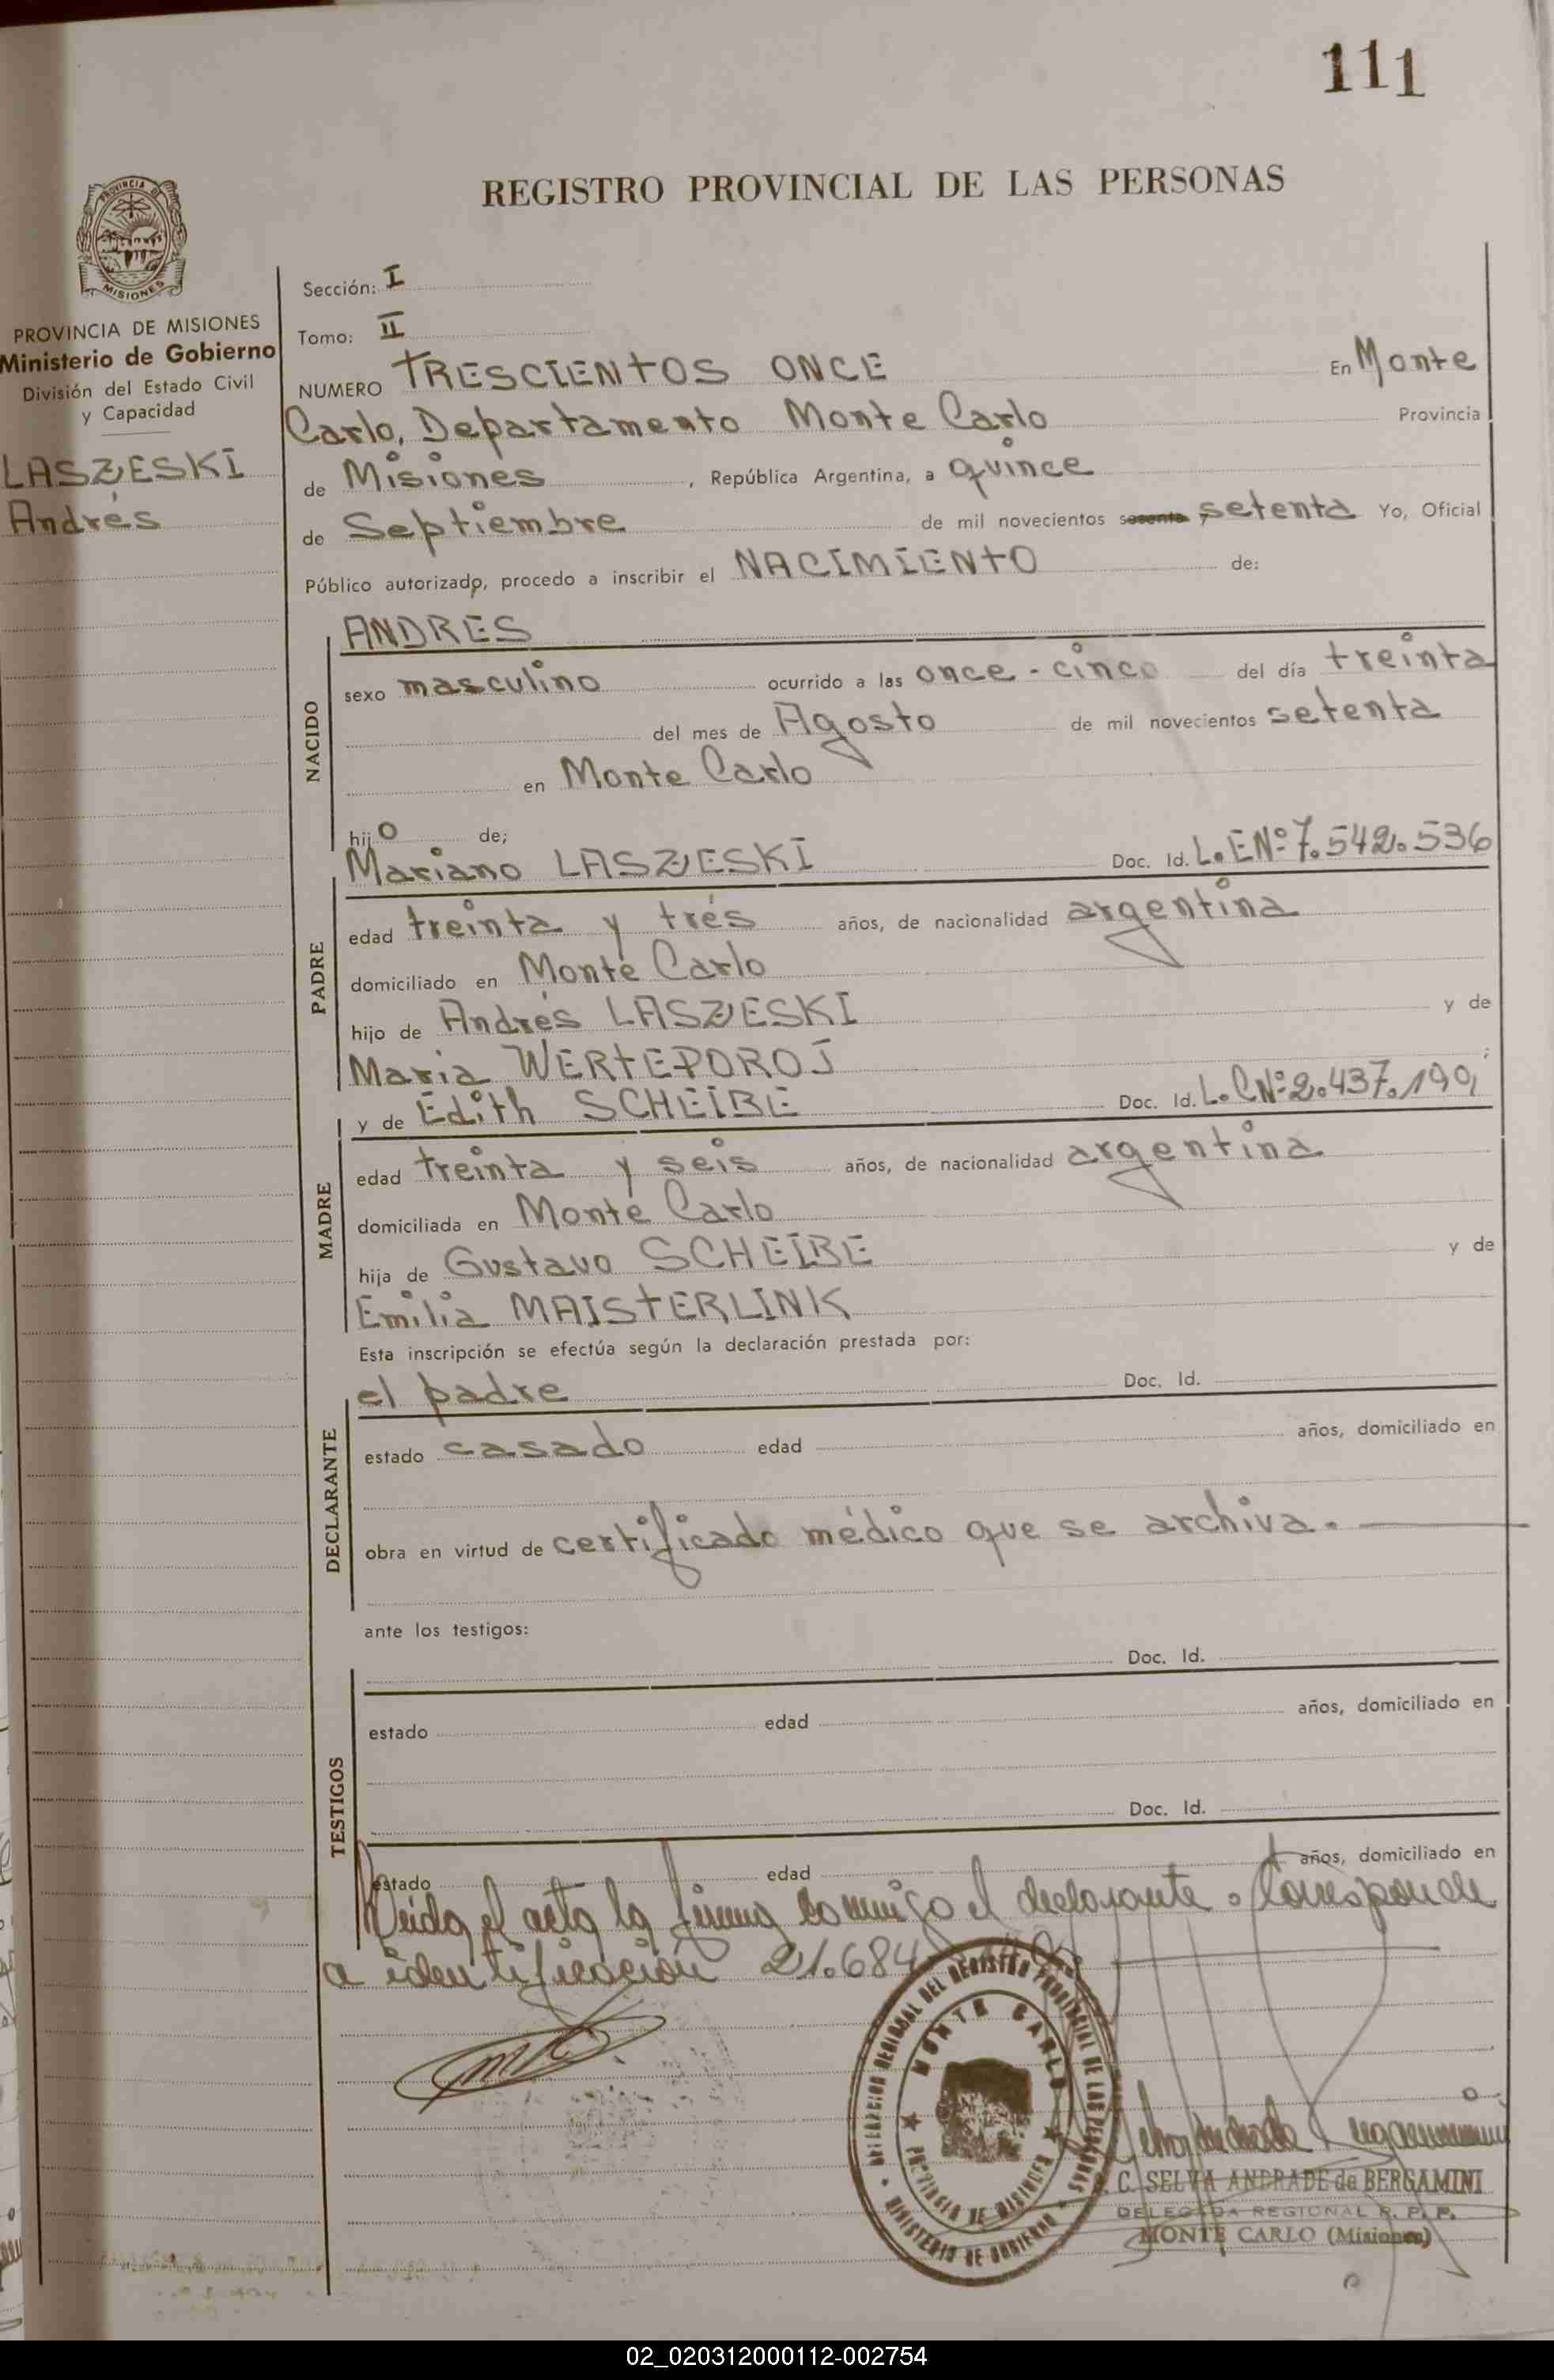 111
REGISTRO PROVINCIAL DE LAS PERSONAS
PROVINCIA DE MISIONES
PROVINCIA DE MISIONES
Ministerio de Gobierno
División del Estado Civil
y Capacidad
LASZESKI
Andrés
Sección: I
Tomo: II
NUMERO TRESCIENTOS ONCE En Monte
Carlo, Departamento Monte Carlo Provincia
de Misiones, República Argentina, a quince
de Septiembre de mil novecientos sesenta y setenta Yo, Oficial
Público autorizado, procedo a inscribir el NACIMIENTO de:
NACIDO
ANDRES
sexo masculino ocurrido a las once - cinco del día treinta
del mes de Agosto de mil novecientos setenta
en Monte Carlo
hijo de;
PADRE
Mariano LASZESKI Doc. Id. L.E Nº 7.542.536
edad treinta y trés años, de nacionalidad argentina
domiciliado en Monte Carlo
hijo de Andrés LASZESKI y de
Maria WERTEPOROJ
MADRE
y de Edith SCHEIBE Doc. Id. L.C Nº 2.437.190
edad treinta y seis años, de nacionalidad argentina
domiciliada en Monte Carlo
hija de Gustavo SCHEIBE y de
Emilia MAISTERLINK
Esta inscripción se efectúa según la declaración prestada por:
DECLARANTE
el padre Doc. Id.
estado casado edad años, domiciliado en
obra en virtud de certificado médico que se archiva.
ante los testigos:
TESTIGOS
Doc. Id.
estado edad años, domiciliado en
Doc. Id.
estado edad años, domiciliado en
Leida el acta la firma conmigo el declarante. Corresponde
a identificación 21.684
DELEGACION REGIONAL DEL REGISTRO PROVINCIAL DE LAS PERSONAS
MINISTERIO DE GOBIERNO
MONTE CARLO
PROVINCIA DE MISIONES
C. SELVA ANDRADE de BERGAMINI
DELEGADA REGIONAL R. P. P.
MONTE CARLO (Misiones)
02_020312000112-002754